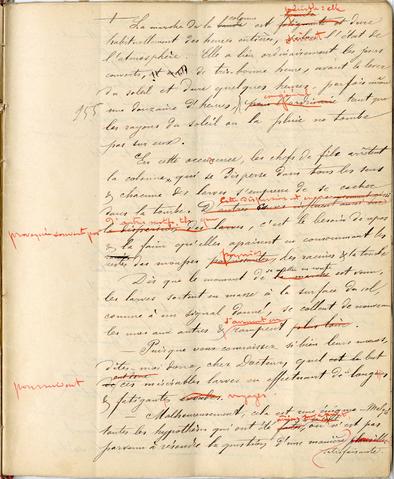 colonne pénible: elle
+ La marche de la bande est fatigante et dure
habituellement des heures entières, suivant l'état de
l'atmosphère. Elle a lieu ordinairement les jours
couverts, de très bonne heure, avant le lever
du soleil et dure quelques heures, parfois même
955 une douzaine d'heures, tant que
les rayons du soleil ou la pluie ne tombe
pas sur eux.
En cette occurence, les chefs de file arrêtent
la colonne, qui se disperse dans tous les sens
& chacune des larves s'empresse de se cacher
dans la tourbe.
provoqué souvent par la dispersion des larves, c'est le besoin de repos
& la faim qu'elles apaisent en consommant les
restes des mousses, des racines & la tourbe
Dès que le moment de la marche est venu,
les larves sortent en masse à la surface du sol,
comme à un signal donné, se collent de nouveau
les unes aux autres & rampent plus loin.
— Puisque vous connaissez si bien leurs mœurs,
dites-moi donc, cher Docteur, quel est le but
poursuivent ces misérables larves en effectuant de longs
& fatigants voyages
— Malheureusement, cela est une énigme. Malgré
toutes les hypothèses qui ont été, on n'est pas
parvenu à résoudre la question d'une manière
satisfaisante.